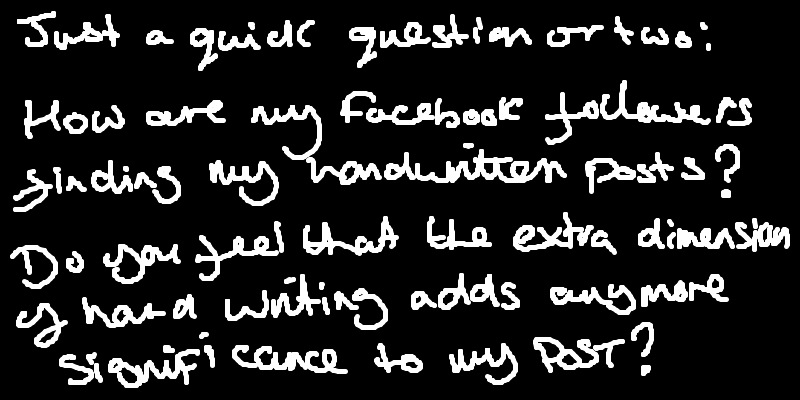 Just a quick question or two:
How are my Facebook followers
finding my handwritten posts?
Do you feel that the extra dimension
of hand writing adds anymore
significance to my POST?